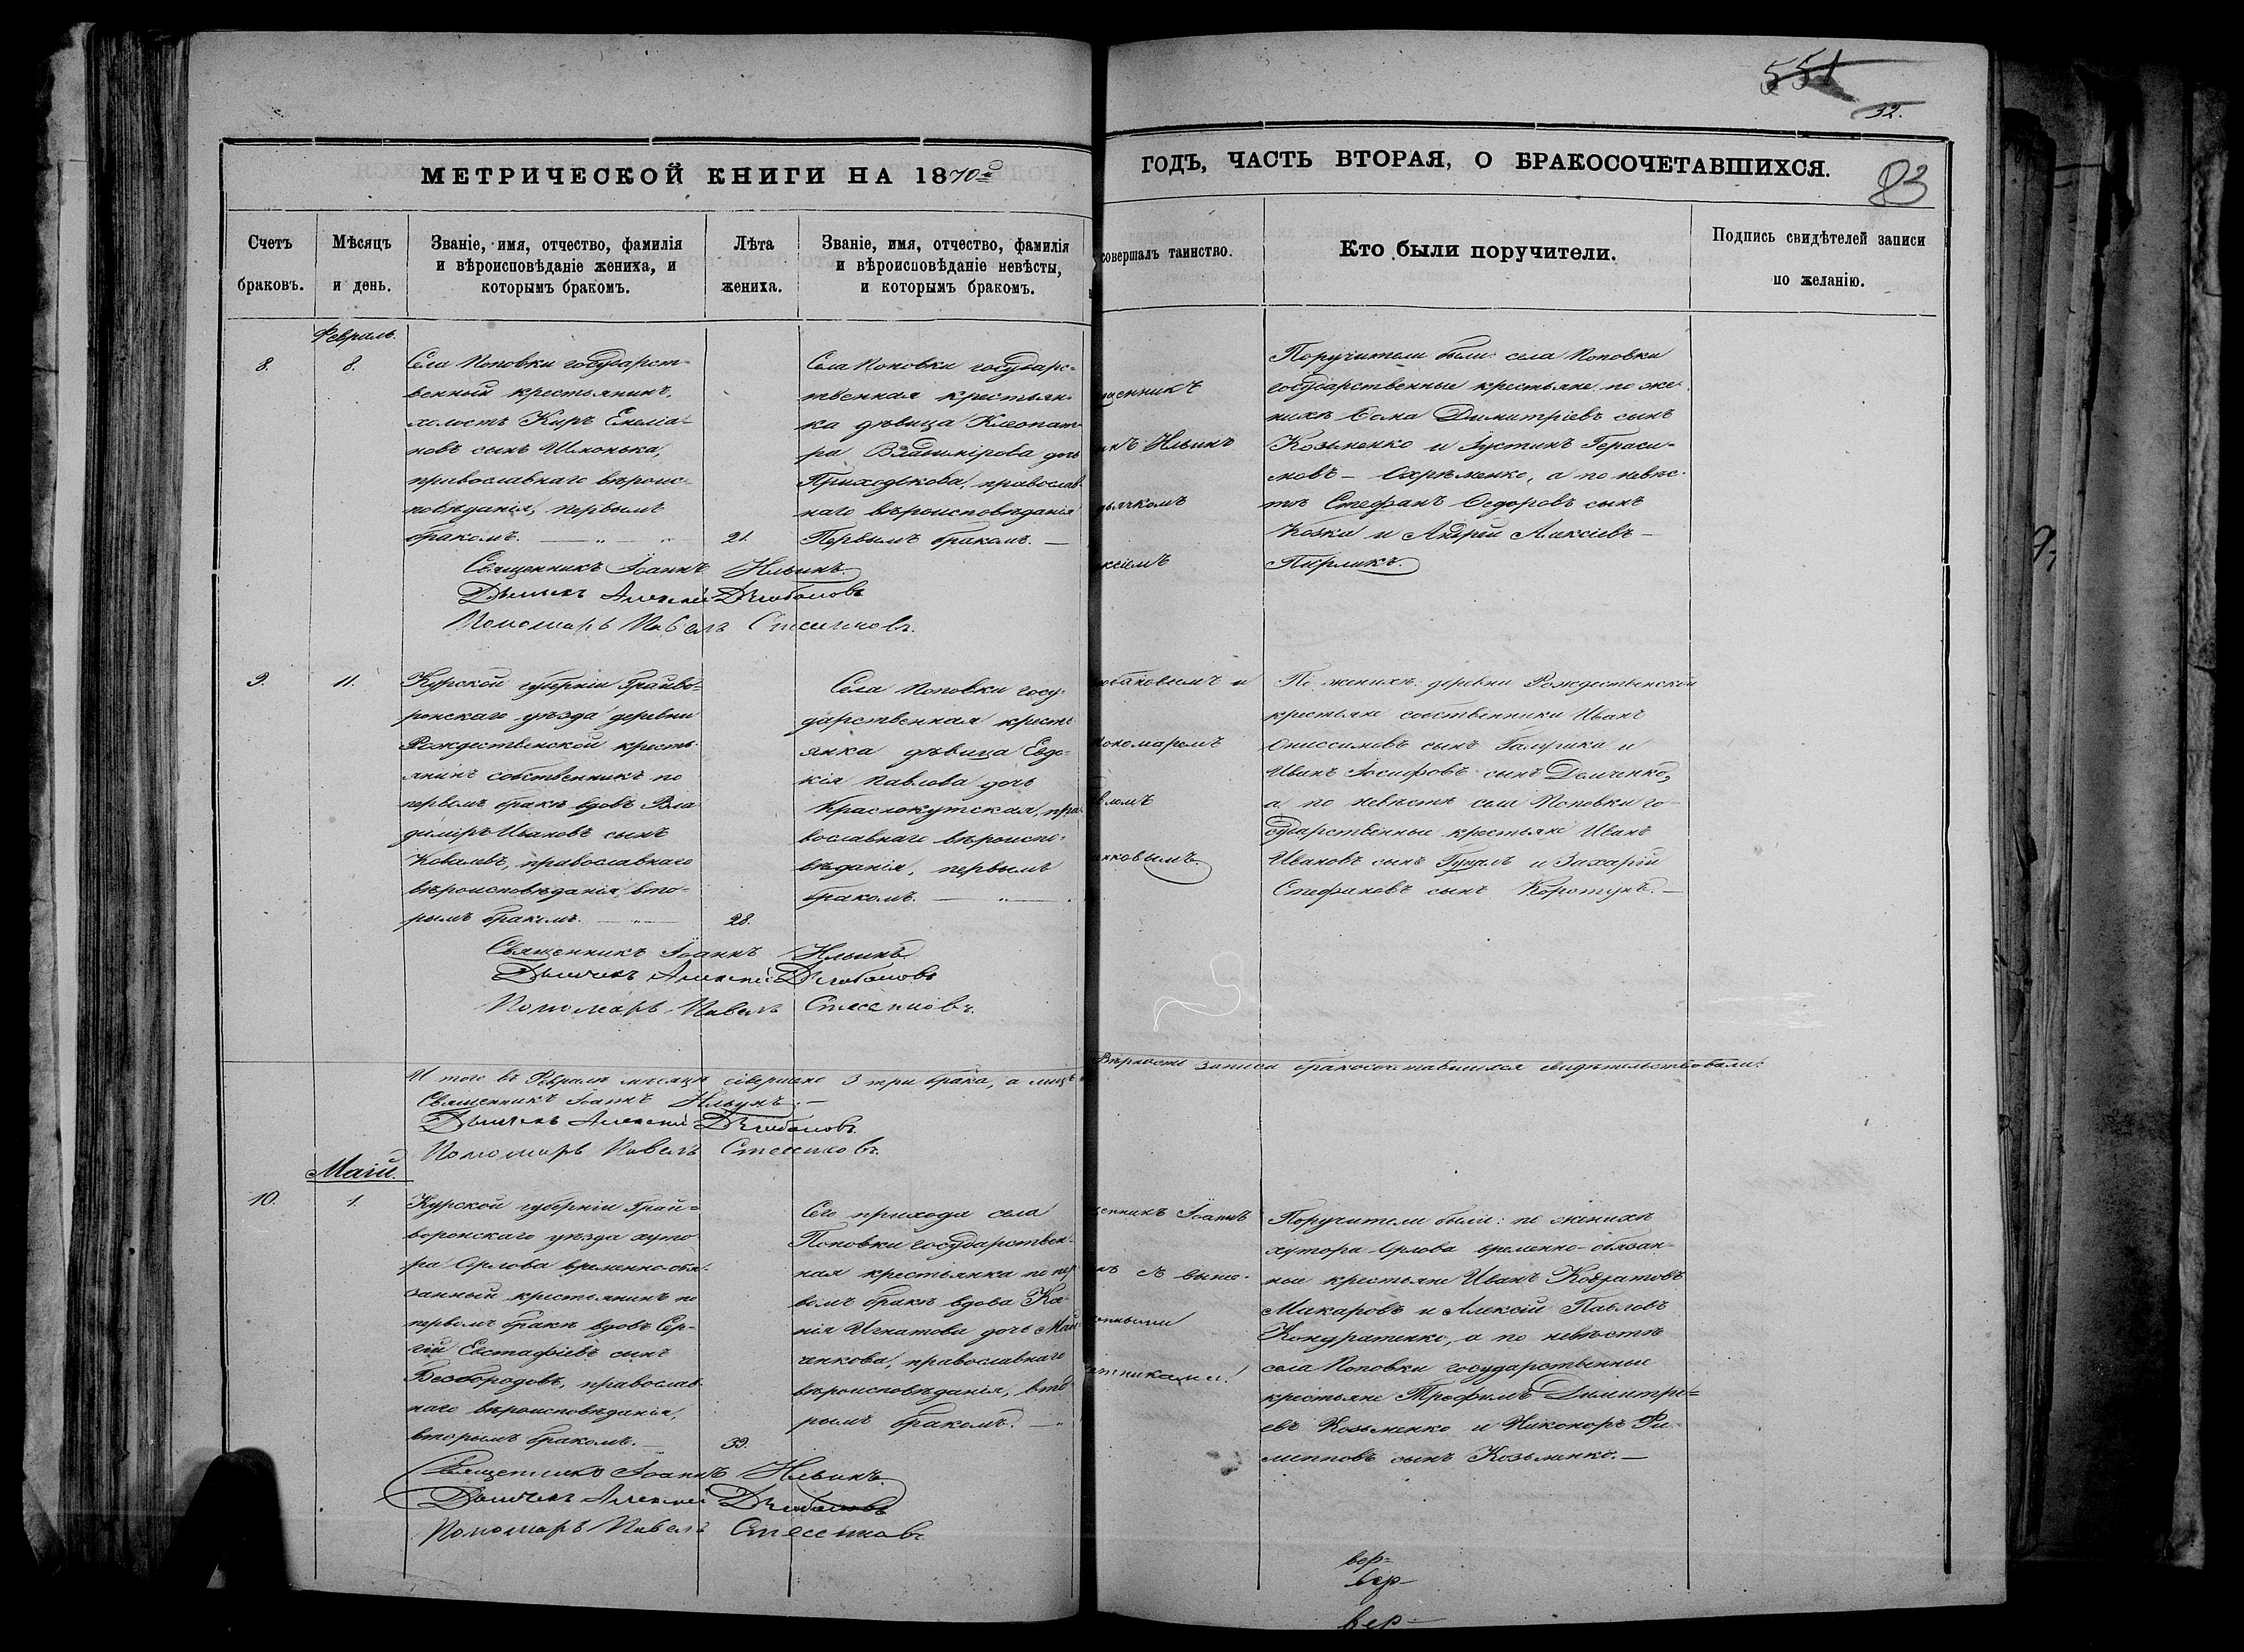 551
32.
83
МЕТРИЧЕСКОЙ КНИГИ НА 1870й
ГОДЪ, ЧАСТЬ ВТОРАЯ, О БРАКОСОЧЕТАВШИХСЯ.
Счетъ браковъ.
Мѣсяцъ и день.
Званіе, имя, отчество, фамилія
и вѣроисповѣданіе жениха, и
которымъ бракомъ.
Лѣта жениха.
Званіе, имя, отчество, фамилія
и вѣроисповѣданіе невѣсты,
и которымъ бракомъ.
совершалъ таинство.
Кто были поручители.
Подпись свидѣтелей записи
по желанію.
Февраль.
8.
8.
Села Поповки государст-
венный крестьянинъ,
холостъ Киръ Емелiа-
новъ сынъ
православнаго вѣроис-
повѣданія, первымъ
бракомъ.
21.
Села Поповки государс-
твенная крестьян-
ка дѣвица Клеопат-
ра Владимірова дочь
Приходькова, православ-
наго вѣроисповѣданія
Первымъ бракомъ. —
щенникъ
нъ Ильинъ
дьячкомъ
ксіемъ
Поручители были: села Поповки
государственные крестьяне по же-
нихѣ Ѳома Димитріевъ сынъ
Козьменко и Іустинъ Гераси-
мовъ — Охрѣменко, а по невѣс-
тѣ Стефанъ Ѳедоровъ сынъ
Козка и Андрей Алексіевъ —
Пирликъ.
Священникъ Іоаннъ Ильинъ.
Дьячекъ Алексей
Пономарь Павелъ
9.
11.
Курской губерніи Грайво-
ронскаго уѣзда деревни
Рождественской кресть-
янинъ собственникъ по
первомъ бракѣ вдовъ Вла
диміръ Ивановъ сынъ
Ковалевъ, православнаго
вѣроисповѣданія, вто-
рымъ бракомъ.
28.
Села Поповки госу-
дарственная кресть
янка дѣвица Евдо-
кія Павлова дочь
Краснокутская, пра-
вославнаго вѣроиспо-
вѣданія, первымъ
бракомъ. —
бановымъ и
пономаремъ
вломъ
нковымъ.
По женихѣ: деревни Рождественской
крестьяне собственники Иванъ
Ониссимовъ сынъ Галушка и
Иванъ Іосифовъ сынъ Демченко,
а по невѣстѣ села Поповки го-
сударственные крестьяне Иванъ
Ивановъ сынъ и Захарій
Стефановъ сынъ Коротунъ. —
Священникъ Іоаннъ Ильинъ.
Дьячекъ Алексей
Пономарь Павелъ
И того въ Февралѣ мѣсяцѣ совершено 3 три брака, а
Вѣрность записи бракосочетавшихся свидѣтельствовали:
Священникъ Іоаннъ Ильинъ. —
Дьячекъ Алексей
Пономарь Павелъ
Маій.
10.
1.
Курской губерніи Грай-
воронскаго уѣзда хуто
ра Орлова временно-обя-
занный крестьянинъ по
первомъ бракѣ вдовъ Сер-
гій Евстафіевъ сынъ
Безбородовъ, православ-
наго вѣроисповѣданія,
вторымъ бракомъ. —
39.
Сего прихода села
Поповки государствен-
ная крестьянка по пер
вомъ бракѣ вдова Ка-
нія Игнатова дочь Май-
ченкова, православнаго
вѣроисповѣданія, вто-
рымъ бракомъ. —
щенникъ Іоаннъ
нъ съ выше-
тниками.
Поручители были: по женихѣ
хутора Орлова временно-обязан-
ные крестьяне Иванъ Кодратовъ
Макаровъ и Алексій Павловъ
Кондратенко, а по невѣстѣ
села Поповки государственные
крестьяне Трофимъ Димитрі-
евъ Козьменко и Никоноръ Фи-
липповъ сынъ Козьменко. —
Священникъ Іоаннъ Ильинъ.
Дьячекъ Алексей
Пономарь Павелъ
вер-
вер-
вер-